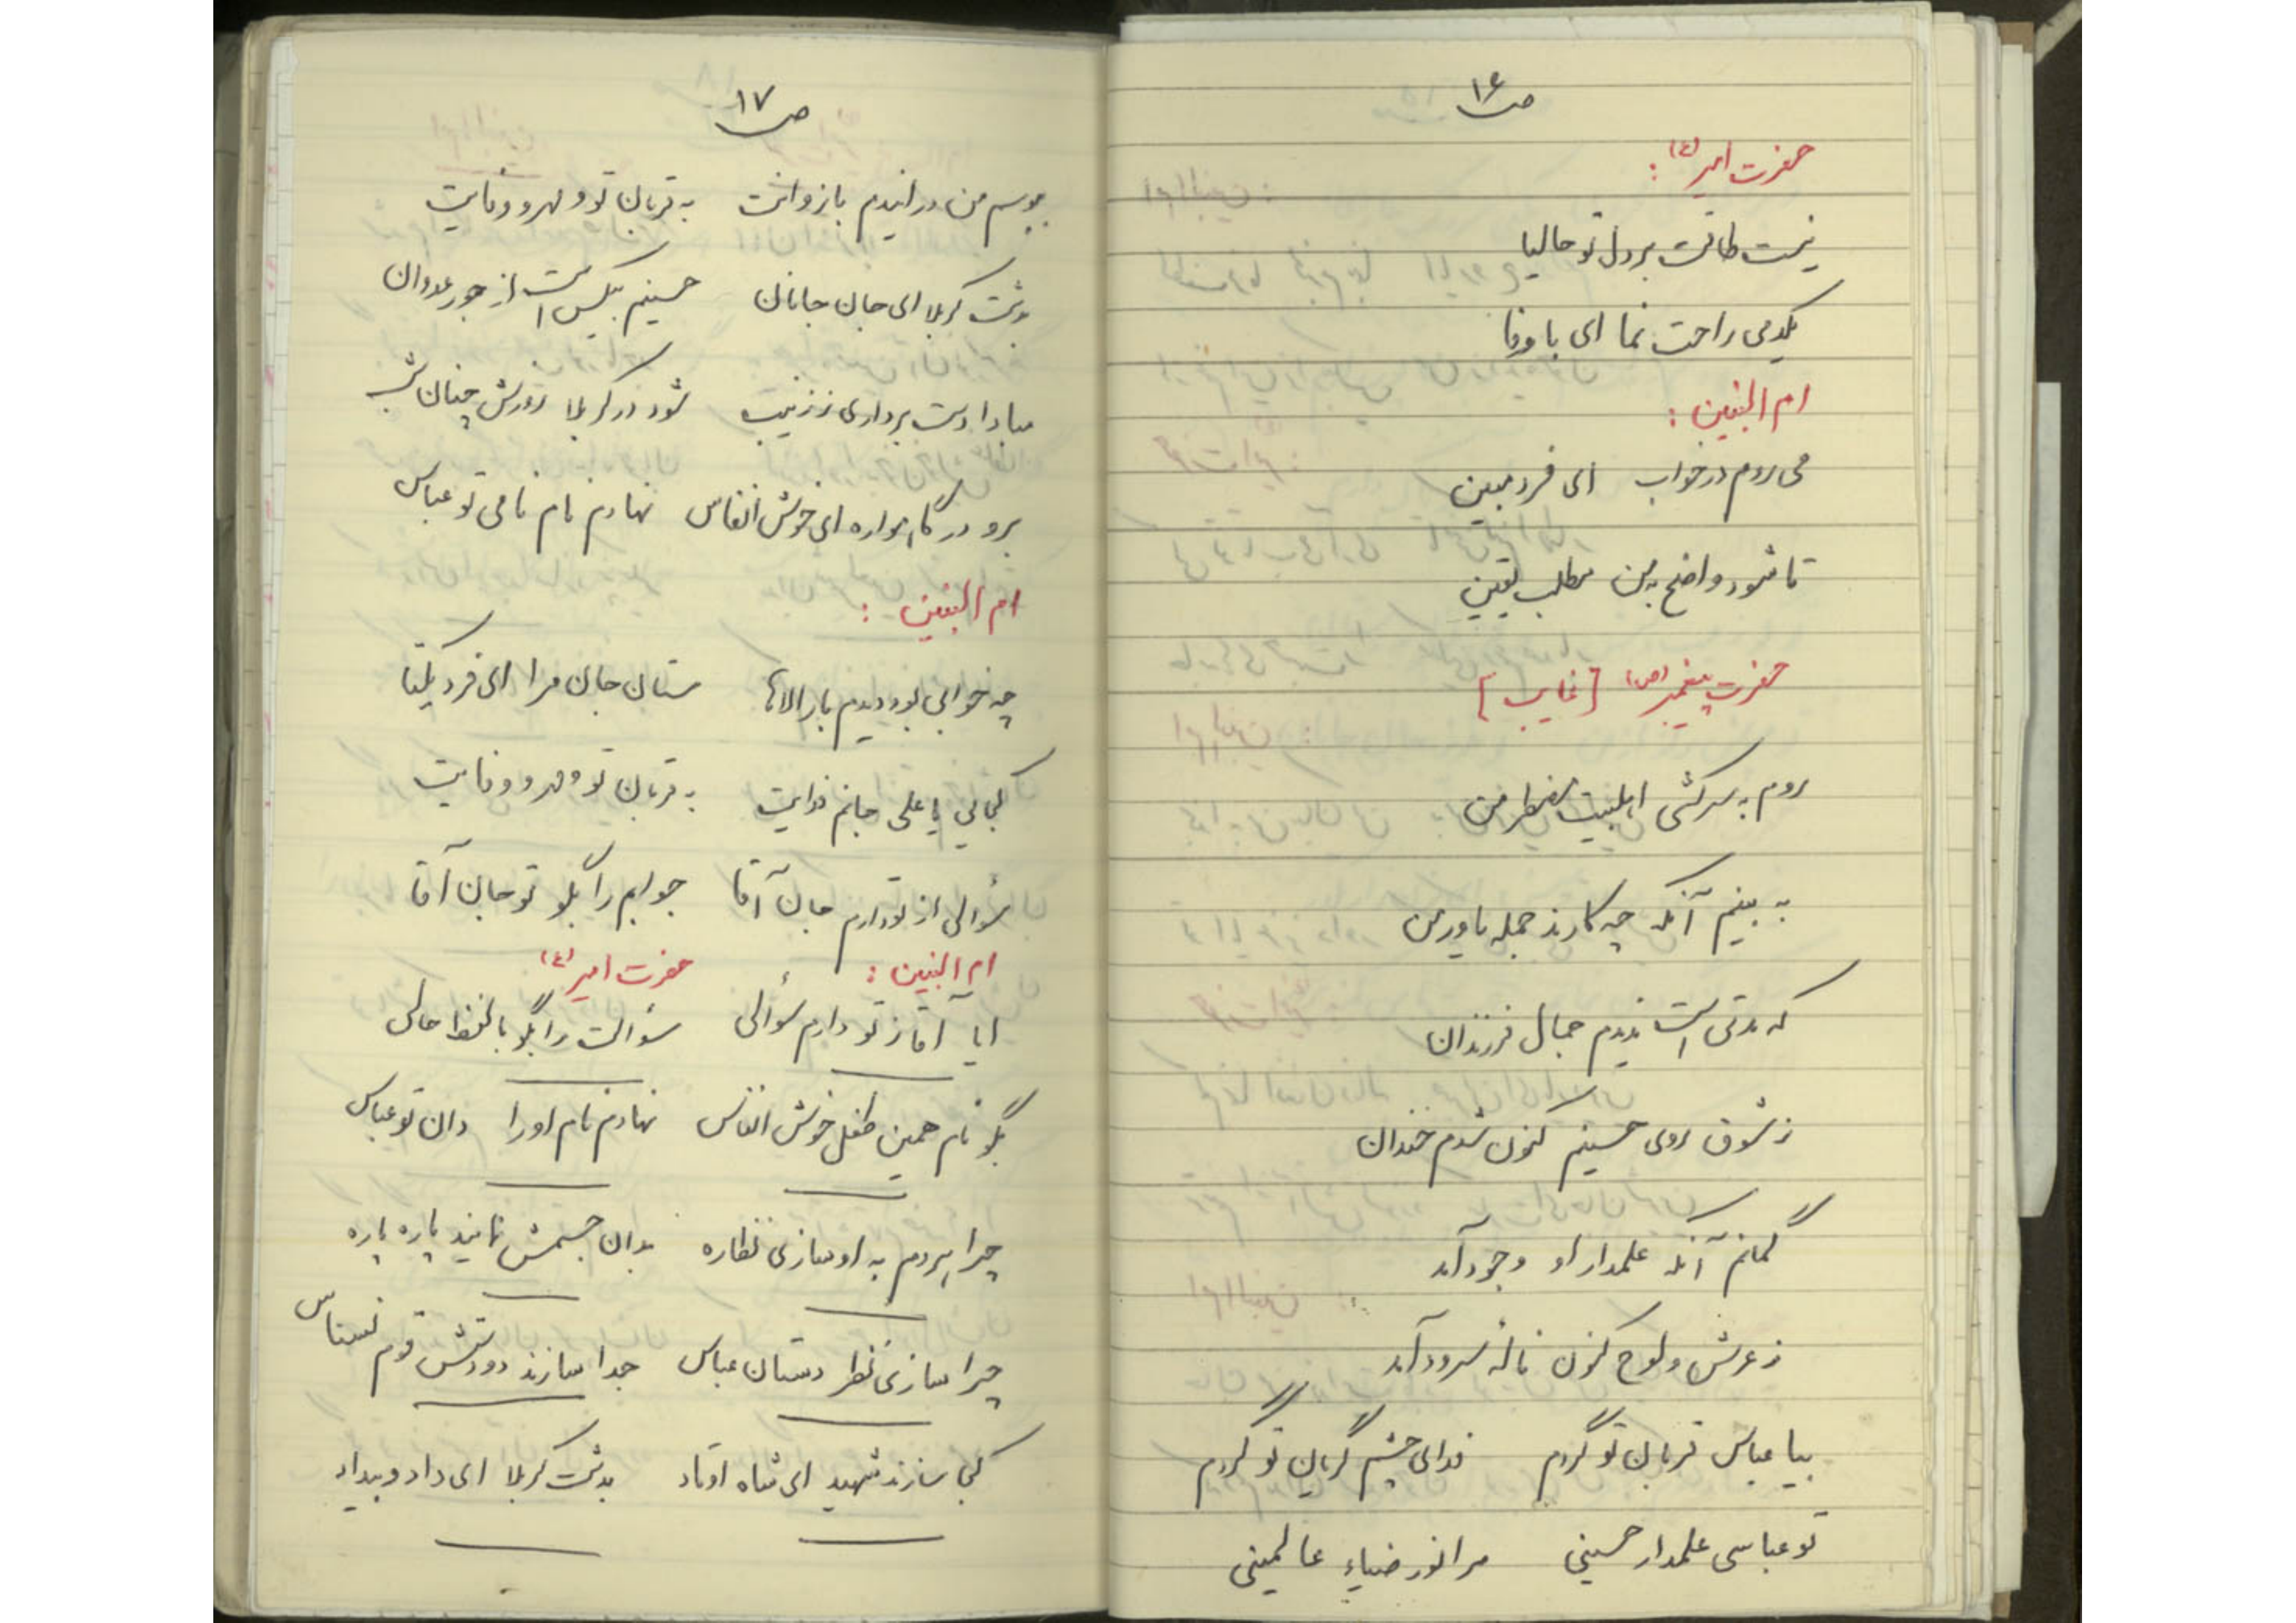 ص ۱۶
حضرت امیر (ع) :
نیست طاقت بر دل تو حالیا
یکدمی راحت نما ای با وفا
ام البنین :
می روم در خواب ای فرد مبین
تا شود واضح به من مطلب یقین
حضرت پیغمبر (ص) [غایب]
روم به سرکشی اهلبیت مضطر من
به بینم آنکه چه کارند جمله یاور من
که مدتی است ندیدم جمال فرزندان
ز شوق روی حسینم کنون شدم خندان
گمانم آنکه علمدار او وجود آمد
ز عرش و لوح کنون ناله سرود آمد
بیا عباس قربان تو گردم فدای چشم گریان تو گردم
تو عباسی علمدار حسینی مرا نور ضیاء عالمینی
ص ۱۷
ببوسم من در ایندم بازوانت به قربان تو و مهر و وفایت
بدشت کربلا ای جان جانان حسینم بیکس است از جور عدوان
مبادا دست برداری ز زینب شود در کربلا روزش چنان شب
برو در گاهواره ای خوش انفاس نهادم نام نامی تو عباس
ام البنین :
چه خوابی بود دیدم بارالاها ستان جان مرا ای فرد یکتا
کجایی یا علی جانم فدایت به قربان تو و مهر و وفایت
سؤالی از تو دارم جان آقا جوابم را بگو تو جان آقا
ام البنین : حضرت امیر (ع)
ایا آقا ز تو دارم سؤالی سؤالت را بگو با لفظ حالی
بگو نام همین طفل خوش انفاس نهادم نام او را دان تو عباس
چرا هردم به او سازی نظاره بدان جسمش نمایند پاره پاره
چرا سازی نظر دستان عباس جدا سازند دو دستش قوم نسناس
کجا سازند شهید ای شاه اوتاد بدشت کربلا ای داد و بیداد